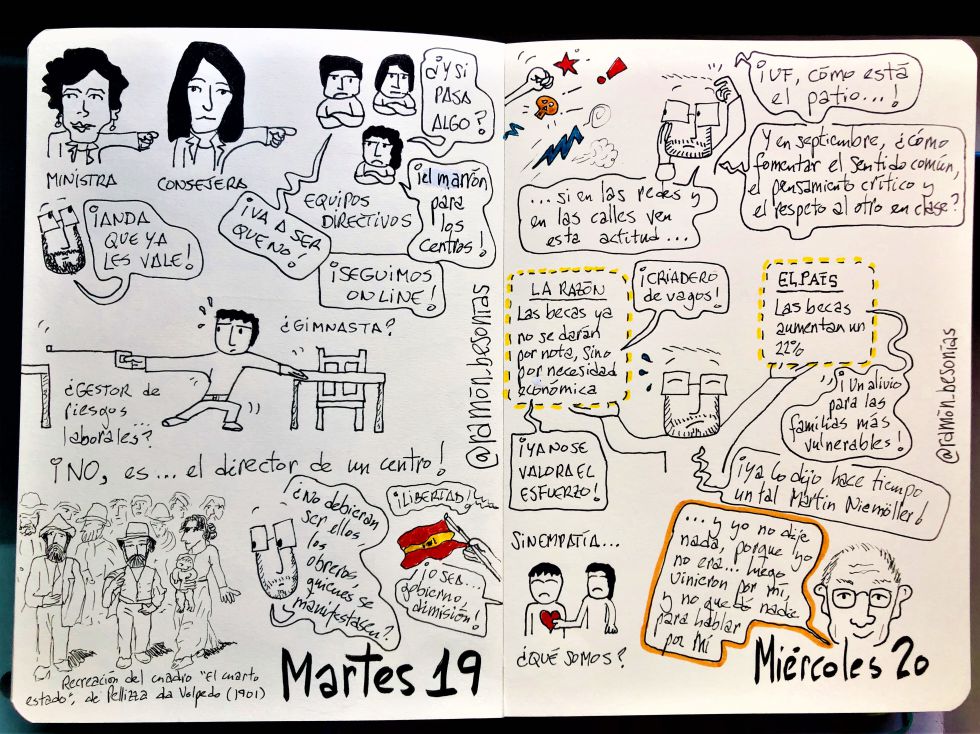 MINISTRA
CONSEJERA
EQUIPOS
DIRECTIVOS
¿Y SI
PASA
ALGO?
¡el marrón
para
los
centros!
¡VA A SER
QUE NO!
¡ANDA
QUE YA
LES VALE!
¡SEGUIMOS
ON LINE!
¿GIMNASTA?
¿GESTOR de
riesgos
laborales...?
¡NO, es... el director de un centro!
¿No debieran
ser ellos,
los
obreros,
quienes se
manifestasen?
¡LIBERTAD!
¡O SEA...
gobierno,
dimisión!
Recreación del cuadro "El cuarto
estado", de Pellizza da Volpedo (1901)
Martes 19
@ramón.besonías
¡UF, cómo está
el patio...!
Y en septiembre, ¿cómo
fomentar el sentido común,
el pensamiento crítico y
el respeto al otro en clase?
... si en las redes y
en las calles ven
esta actitud...
LA RAZÓN
Las becas ya
no se darán
por nota, sino
por necesidad
económica
¡CRIADERO
de vagos!
EL PAÍS
Las becas
aumentan un
22%
¡Un alivio
para las
familias más
vulnerables!
¡YA NO SE
VALORA EL
ESFUERZO!
¡Ya lo dijo hace tiempo
un tal Martin Niemöller!
SIN EMPATÍA...
¿QUÉ SOMOS?
... y yo no dije
nada, porque yo
no era... luego
vinieron por mí,
y no quedó nadie
para hablar
por mí
Miércoles 20
@ramón.besonías